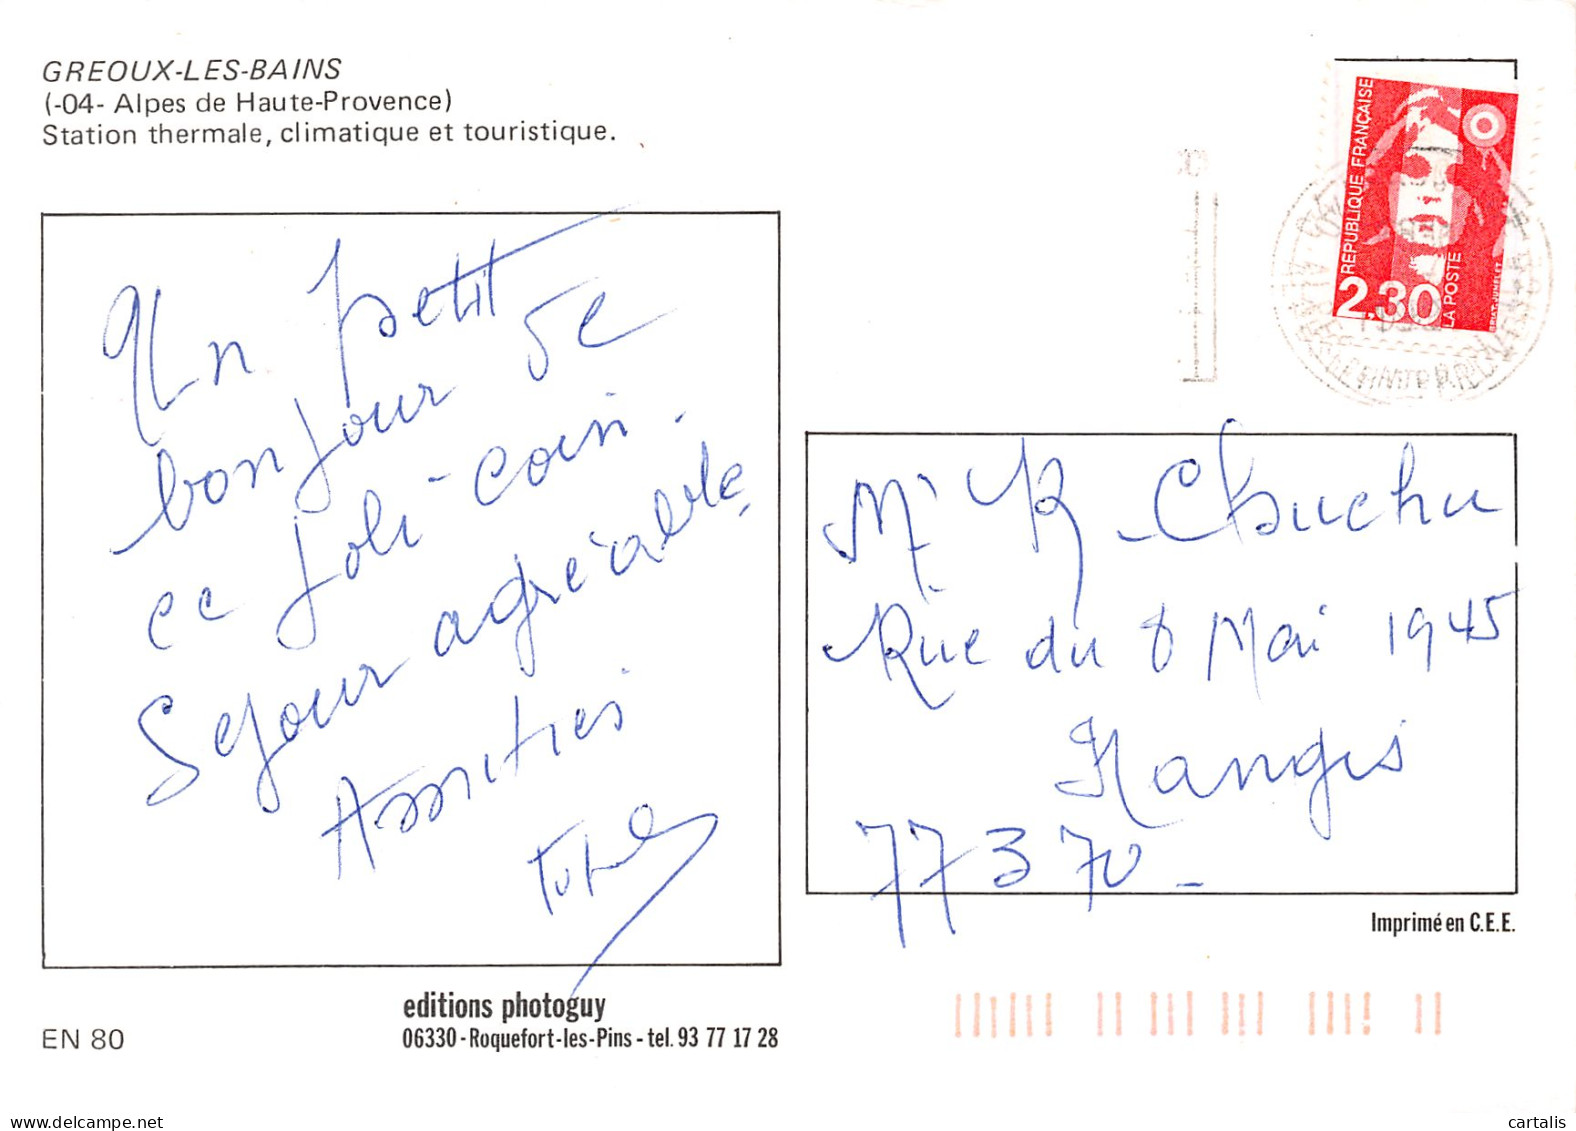 GREOUX-LES-BAINS
(-04- Alpes de Haute-Provence)
Station thermale, climatique et touristique.
Un petit
bonjour de
ce joli coin.
Sejour agréable
Amitiés
REPUBLIQUE FRANÇAISE
2,30
LA POSTE
Mr R Chuchu
Rue du 8 Mai 1945
Nangis
77370
Imprimé en C.E.E.
editions photoguy
06330 - Roquefort-les-Pins - tel. 93 77 17 28
EN 80
delcampe.net
cartalis